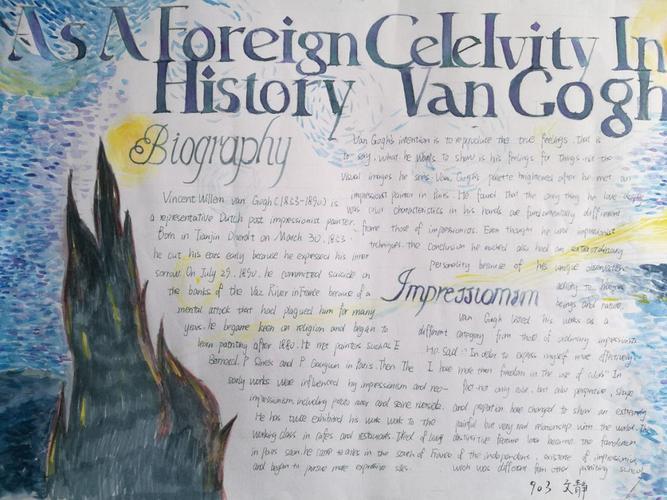 As A Foreign Celelvity In
History Van Gogh
Biography
Vincent Willem van Gogh (1853-1890) is
a representative Dutch post impressionist painter.
Born in Tianjin on March 30, 1853.
he cut his ears early because he expressed his inner
sorrow. On July 29, 1890, he committed suicide on
the banks of the Vaz River in France because of a
mental attack that had plagued him for many
years. he became keen on religion and began to
learn painting after 1880. He met painters such as E
Bernard, P Sines and P Gauguin in Paris. Then The
early works were influenced by impressionism and neo-
impressionism, including potato eater and seine riverside.
He has twice exhibited his work to the
working class in cafes and restaurants. Tired of living
in Paris soon, he came to in the south of France
and began to pursue more expressive
Van Gogh's intention is to reproduce the true feelings. that is
to say, what he wants to show is his feelings for things, not the
visual images he sees. Van Gogh's palette brightened after he met an
impressionist painter in Paris. He found that the only thing he love
was color characteristics in his hands are fundamentally different
from those of impressionists. Even though he used impressionist
techniques, the conclusion he reached also had an extraordinary
personality because of his unique observation
ability to
beings and nature.
Impressionism
Van Gogh listed his works as a
different category from those of ordinary impressionists
He said: "In order to express myself more effectively,
I have more than freedom in the use of color." In
fact not only color, but also perspective, shape
and proportion have changed to show an extremely
painful but very real relationship with the world.
distinctive feature later became the
of the independent, existence of impressionism
which was different from other painting school
903 文静